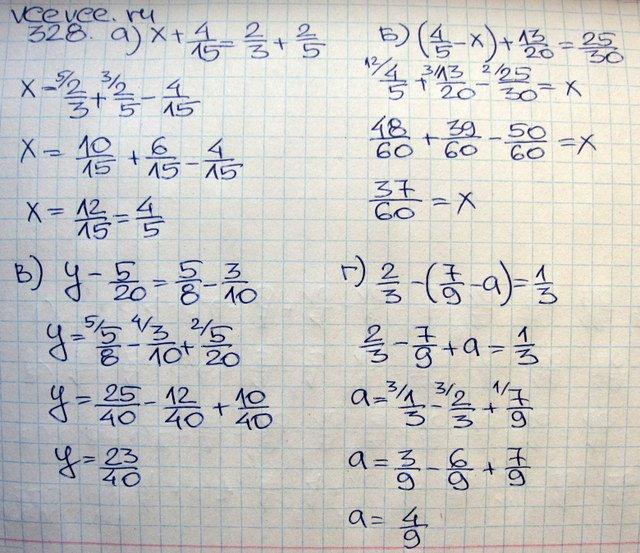 veevee.ru
328. а) x + 4/15 = 2/3 + 2/5
x = 5/ 2/3 + 3/ 2/5 - 4/15
x = 10/15 + 6/15 - 4/15
x = 12/15 = 4/5
Б) (4/5 - x) + 13/20 = 25/30
12/ 4/5 + 3/ 13/20 - 2/ 25/30 = x
48/60 + 39/60 - 50/60 = x
37/60 = x
В) y - 5/20 = 5/8 - 3/10
y = 5/ 5/8 - 4/ 3/10 + 2/ 5/20
y = 25/40 - 12/40 + 10/40
y = 23/40
г) 2/3 - (7/9 - a) = 1/3
2/3 - 7/9 + a = 1/3
a = 3/ 1/3 - 3/ 2/3 + 1/ 7/9
a = 3/9 - 6/9 + 7/9
a = 4/9